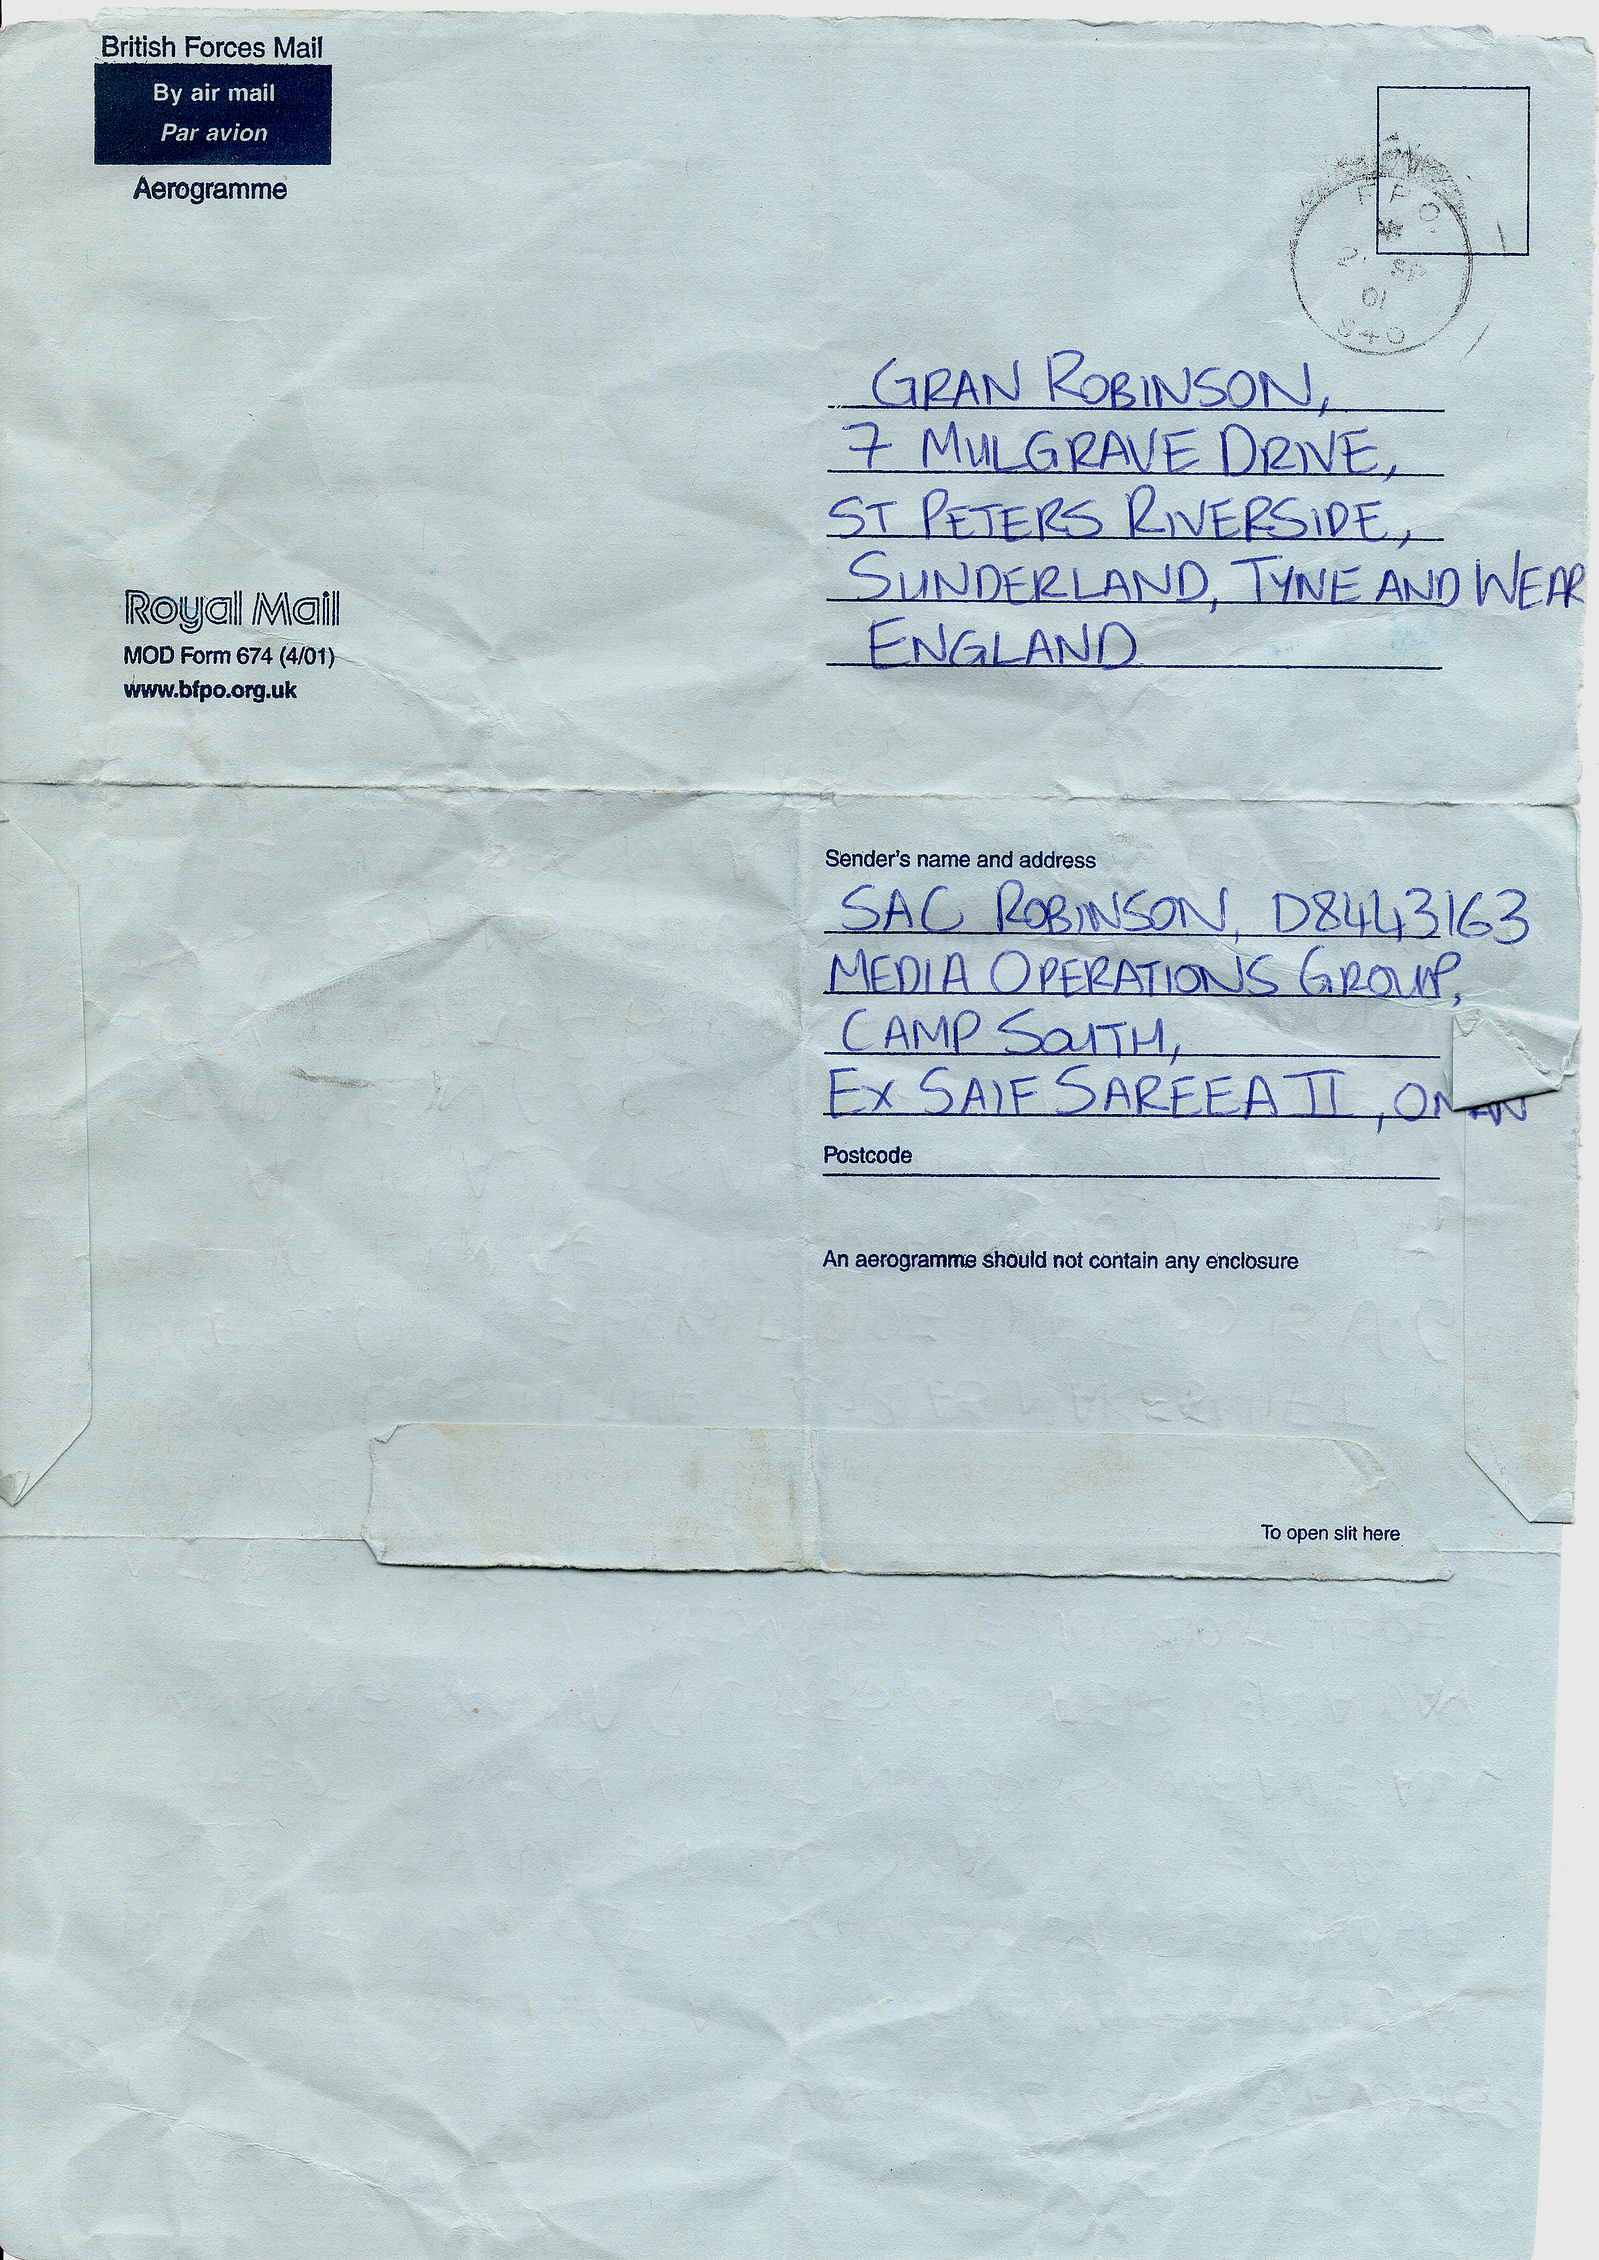 British Forces Mail
By air mail
Par avion
Aerogramme
F F O.
SP
01
GRAN ROBINSON,
7 MULGRAVE DRIVE,
ST PETERS RIVERSIDE,
SUNDERLAND, TYNE AND WEAR
ENGLAND
Royal Mail
MOD Form 674 (4/01)
www.bfpo.org.uk
Sender's name and address
SAC ROBINSON, D8443163
MEDIA OPERATIONS GROUP,
CAMP SOUTH,
EX SAIF SAREEA II, OMAN
Postcode
An aerogramme should not contain any enclosure
To open slit here